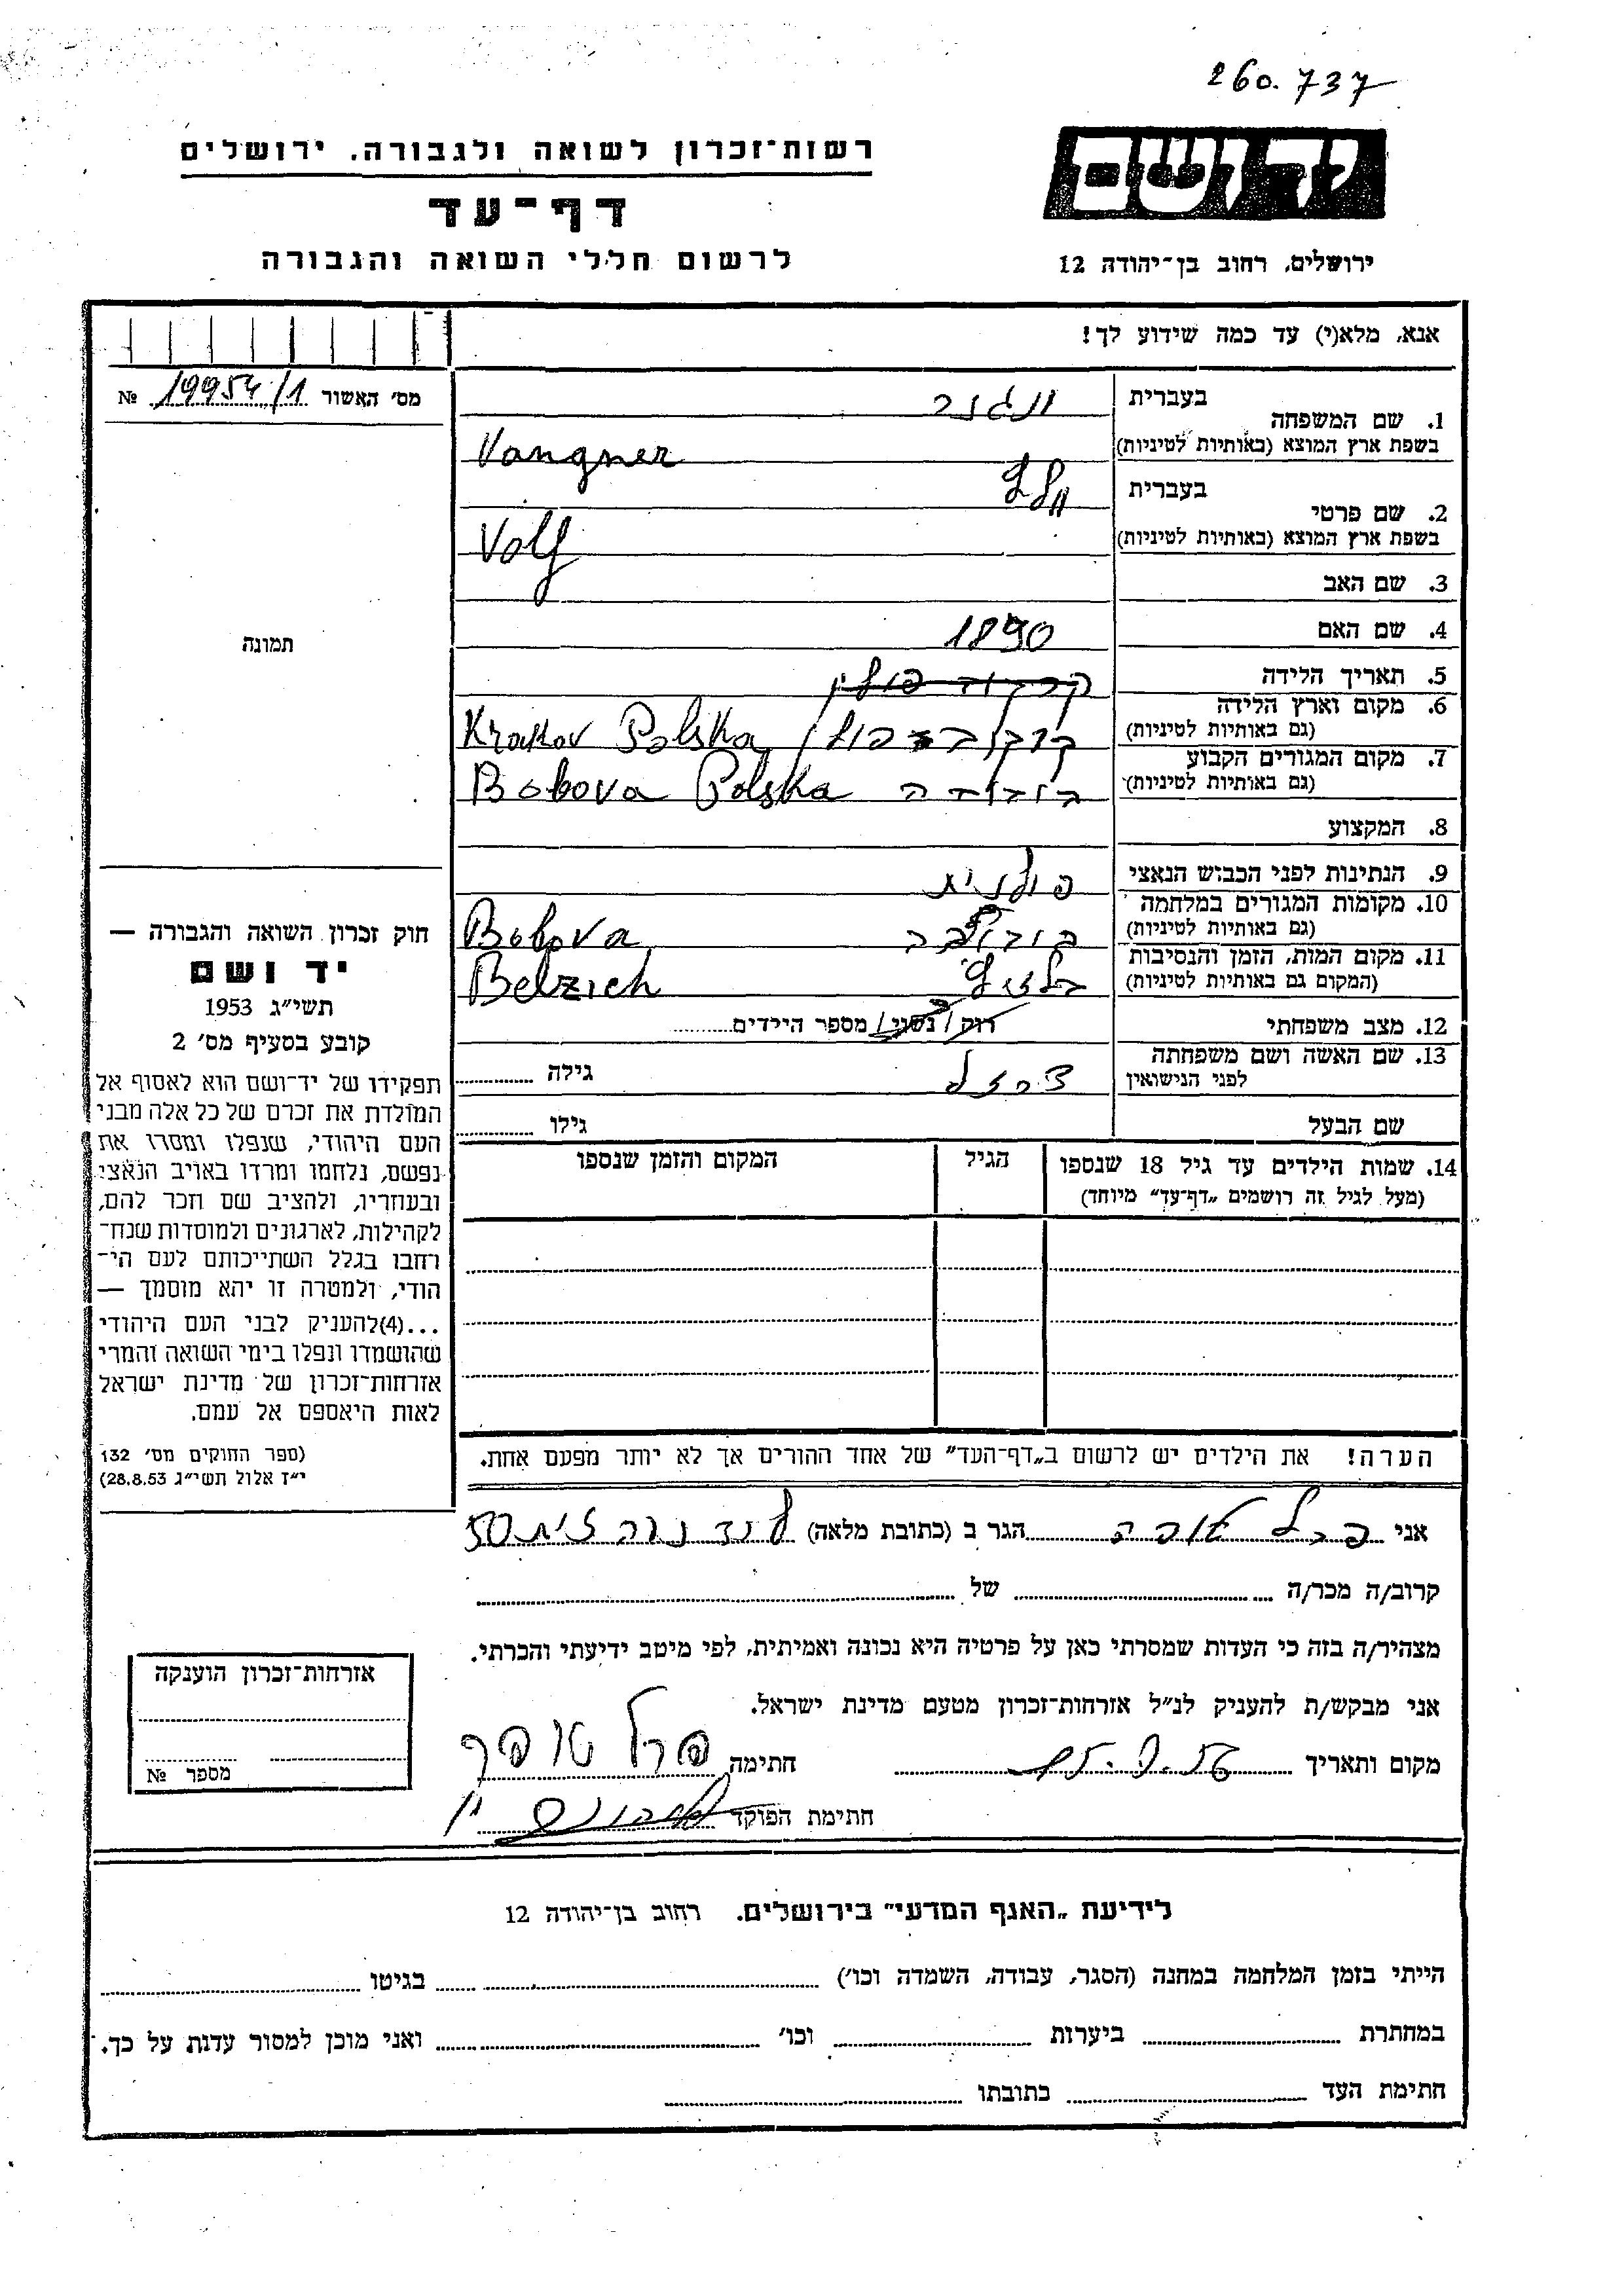 260.737
רשות־זכרון לשואה ולגבורה. ירושלים
יד ושם
דף־עד
לרשום חללי השואה והגבורה
ירושלים, רחוב בן־יהודה 12
אנא, מלא(י) עד כמה שידוע לך!
מס׳ האשור 19954/1 №
1. שם המשפחה
בעברית ונגנר
בשפת ארץ המוצא (באותיות לטיניות) Vangner
2. שם פרטי
בעברית וולף
בשפת ארץ המוצא (באותיות לטיניות) Volf
3. שם האב
4. שם האם 1890
5. תאריך הלידה קרקוב פולין
6. מקום וארץ הלידה
(גם באותיות לטיניות) פולין Krakov Polska
7. מקום המגורים הקבוע
(גם באותיות לטיניות) בובובה Bobova Polska
8. המקצוע
9. הנתינות לפני הכבוש הנאצי פולנית
10. מקומות המגורים במלחמה
(גם באותיות לטיניות) Bobova
11. מקום המות, הזמן והנסיבות
(המקום גם באותיות לטיניות) Belzich
12. מצב משפחתי רוק / נשוי / מספר הילדים
13. שם האשה ושם משפחתה
לפני הנישואין גילה
שם הבעל גילו
14. שמות הילדים עד גיל 18 שנספו הגיל המקום והזמן שנספו
(מעל לגיל זה רושמים „דף־עד״ מיוחד)
הערה! את הילדים יש לרשום ב„דף־העד״ של אחד ההורים אך לא יותר מפעם אחת.
תמונה
חוק זכרון השואה והגבורה —
יד ושם
תשי״ג 1953
קובע בסעיף מס׳ 2
תפקידו של יד־ושם הוא לאסוף אל
המולדת את זכרם של כל אלה מבני
העם היהודי, שנפלו ומסרו את
נפשם, נלחמו ומרדו באויב הנאצי
ובעוזריו, ולהציב שם וזכר להם,
לקהילות, לארגונים ולמוסדות שנח־
רבו בגלל השתייכותם לעם הי־
הודי, ולמטרה זו יהא מוסמך —
...(4) להעניק לבני העם היהודי
שהושמדו ונפלו בימי השואה והמרי
אזרחות־זכרון של מדינת ישראל
לאות היאספם אל עמם.
(ספר החוקים מס׳ 132
י״ז אלול תשי״ג 28.8.53)
אני פרל הגר ב (כתובת מלאה)
קרוב/ה מכר/ה של
מצהיר/ה בזה כי העדות שמסרתי כאן על פרטיה היא נכונה ואמיתית, לפי מיטב ידיעתי והכרתי.
אני מבקש/ת להעניק לנ״ל אזרחות־זכרון מטעם מדינת ישראל.
מקום ותאריך חתימה פרל
חתימת הפוקד
אזרחות־זכרון הוענקה
מספר №
לידיעת „האגף המדעי״ בירושלים. רחוב בן־יהודה 12
הייתי בזמן המלחמה במחנה (הסגר, עבודה, השמדה וכו׳) בגיטו
במחתרת ביערות וכו׳ ואני מוכן למסור עדות על כך.
חתימת העד כתובתו